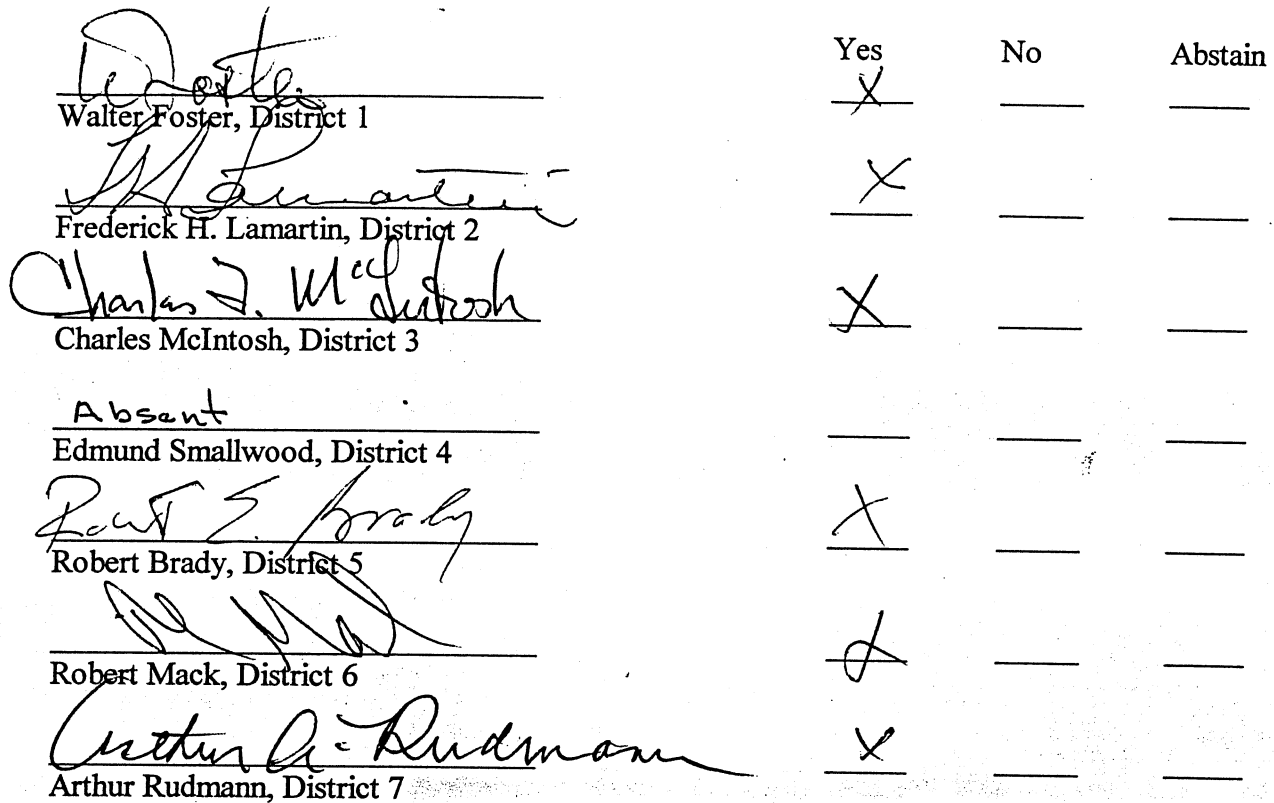 Yes No Abstain
W Foster X
Walter Foster, District 1
F H Lamartin X
Frederick H. Lamartin, District 2
Charles F. McIntosh X
Charles McIntosh, District 3
Absent
Edmund Smallwood, District 4
Robert E. Brady X
Robert Brady, District 5
X
Robert Mack, District 6
Arthur A. Rudmann X
Arthur Rudmann, District 7